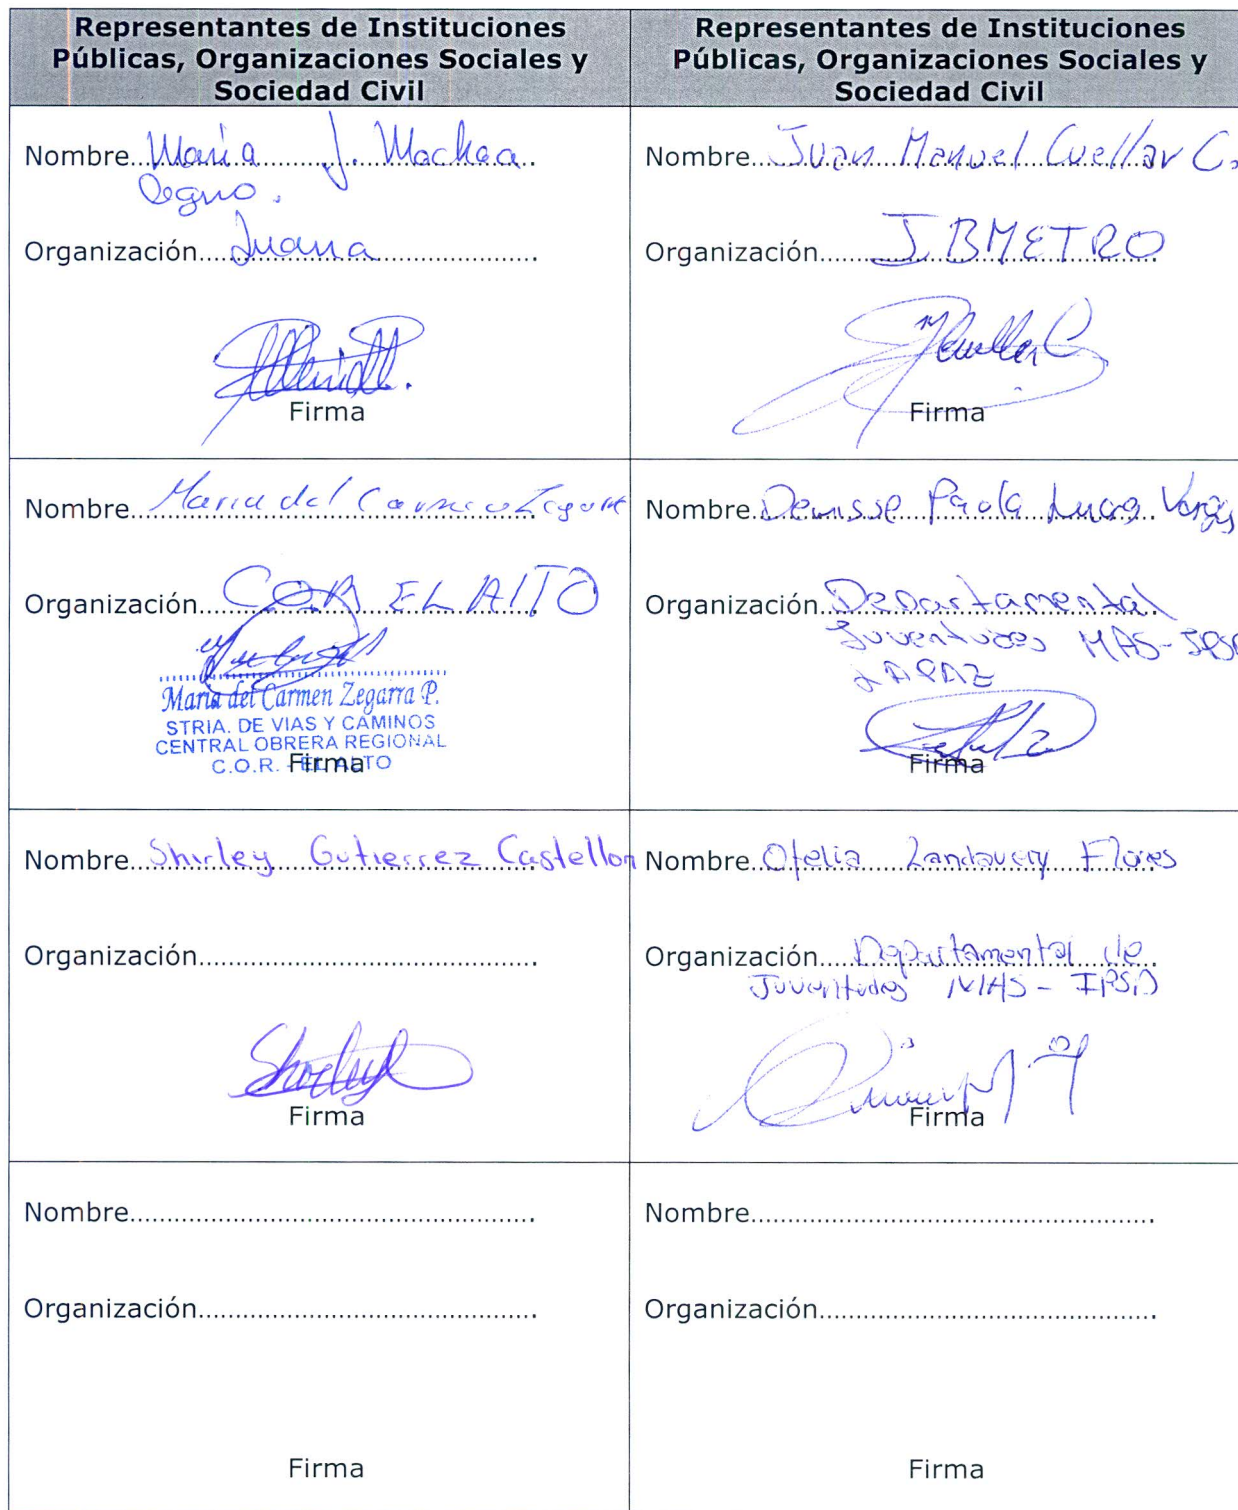 Representantes de Instituciones
Públicas, Organizaciones Sociales y
Sociedad Civil
Representantes de Instituciones
Públicas, Organizaciones Sociales y
Sociedad Civil
Nombre Maria J. Machaca
Organización Juana
Firma
Nombre Juan Manuel Cuellar C.
Organización IBMETRO
Firma
Nombre Maria del Carmen
Organización COR EL ALTO
Maria del Carmen Zegarra P.
STRIA. DE VIAS Y CAMINOS
CENTRAL OBRERA REGIONAL
C.O.R. - EL ALTO
Firma
Nombre Denisse Paola Vargas
Organización Departamental
Juventudes MAS-IPSP
LA PAZ
Firma
Nombre Shirley Gutierrez Castellon
Organización
Firma
Nombre Ofelia Flores
Organización Departamental de
Juventudes MAS-IPSP
Firma
Nombre
Organización
Firma
Nombre
Organización
Firma